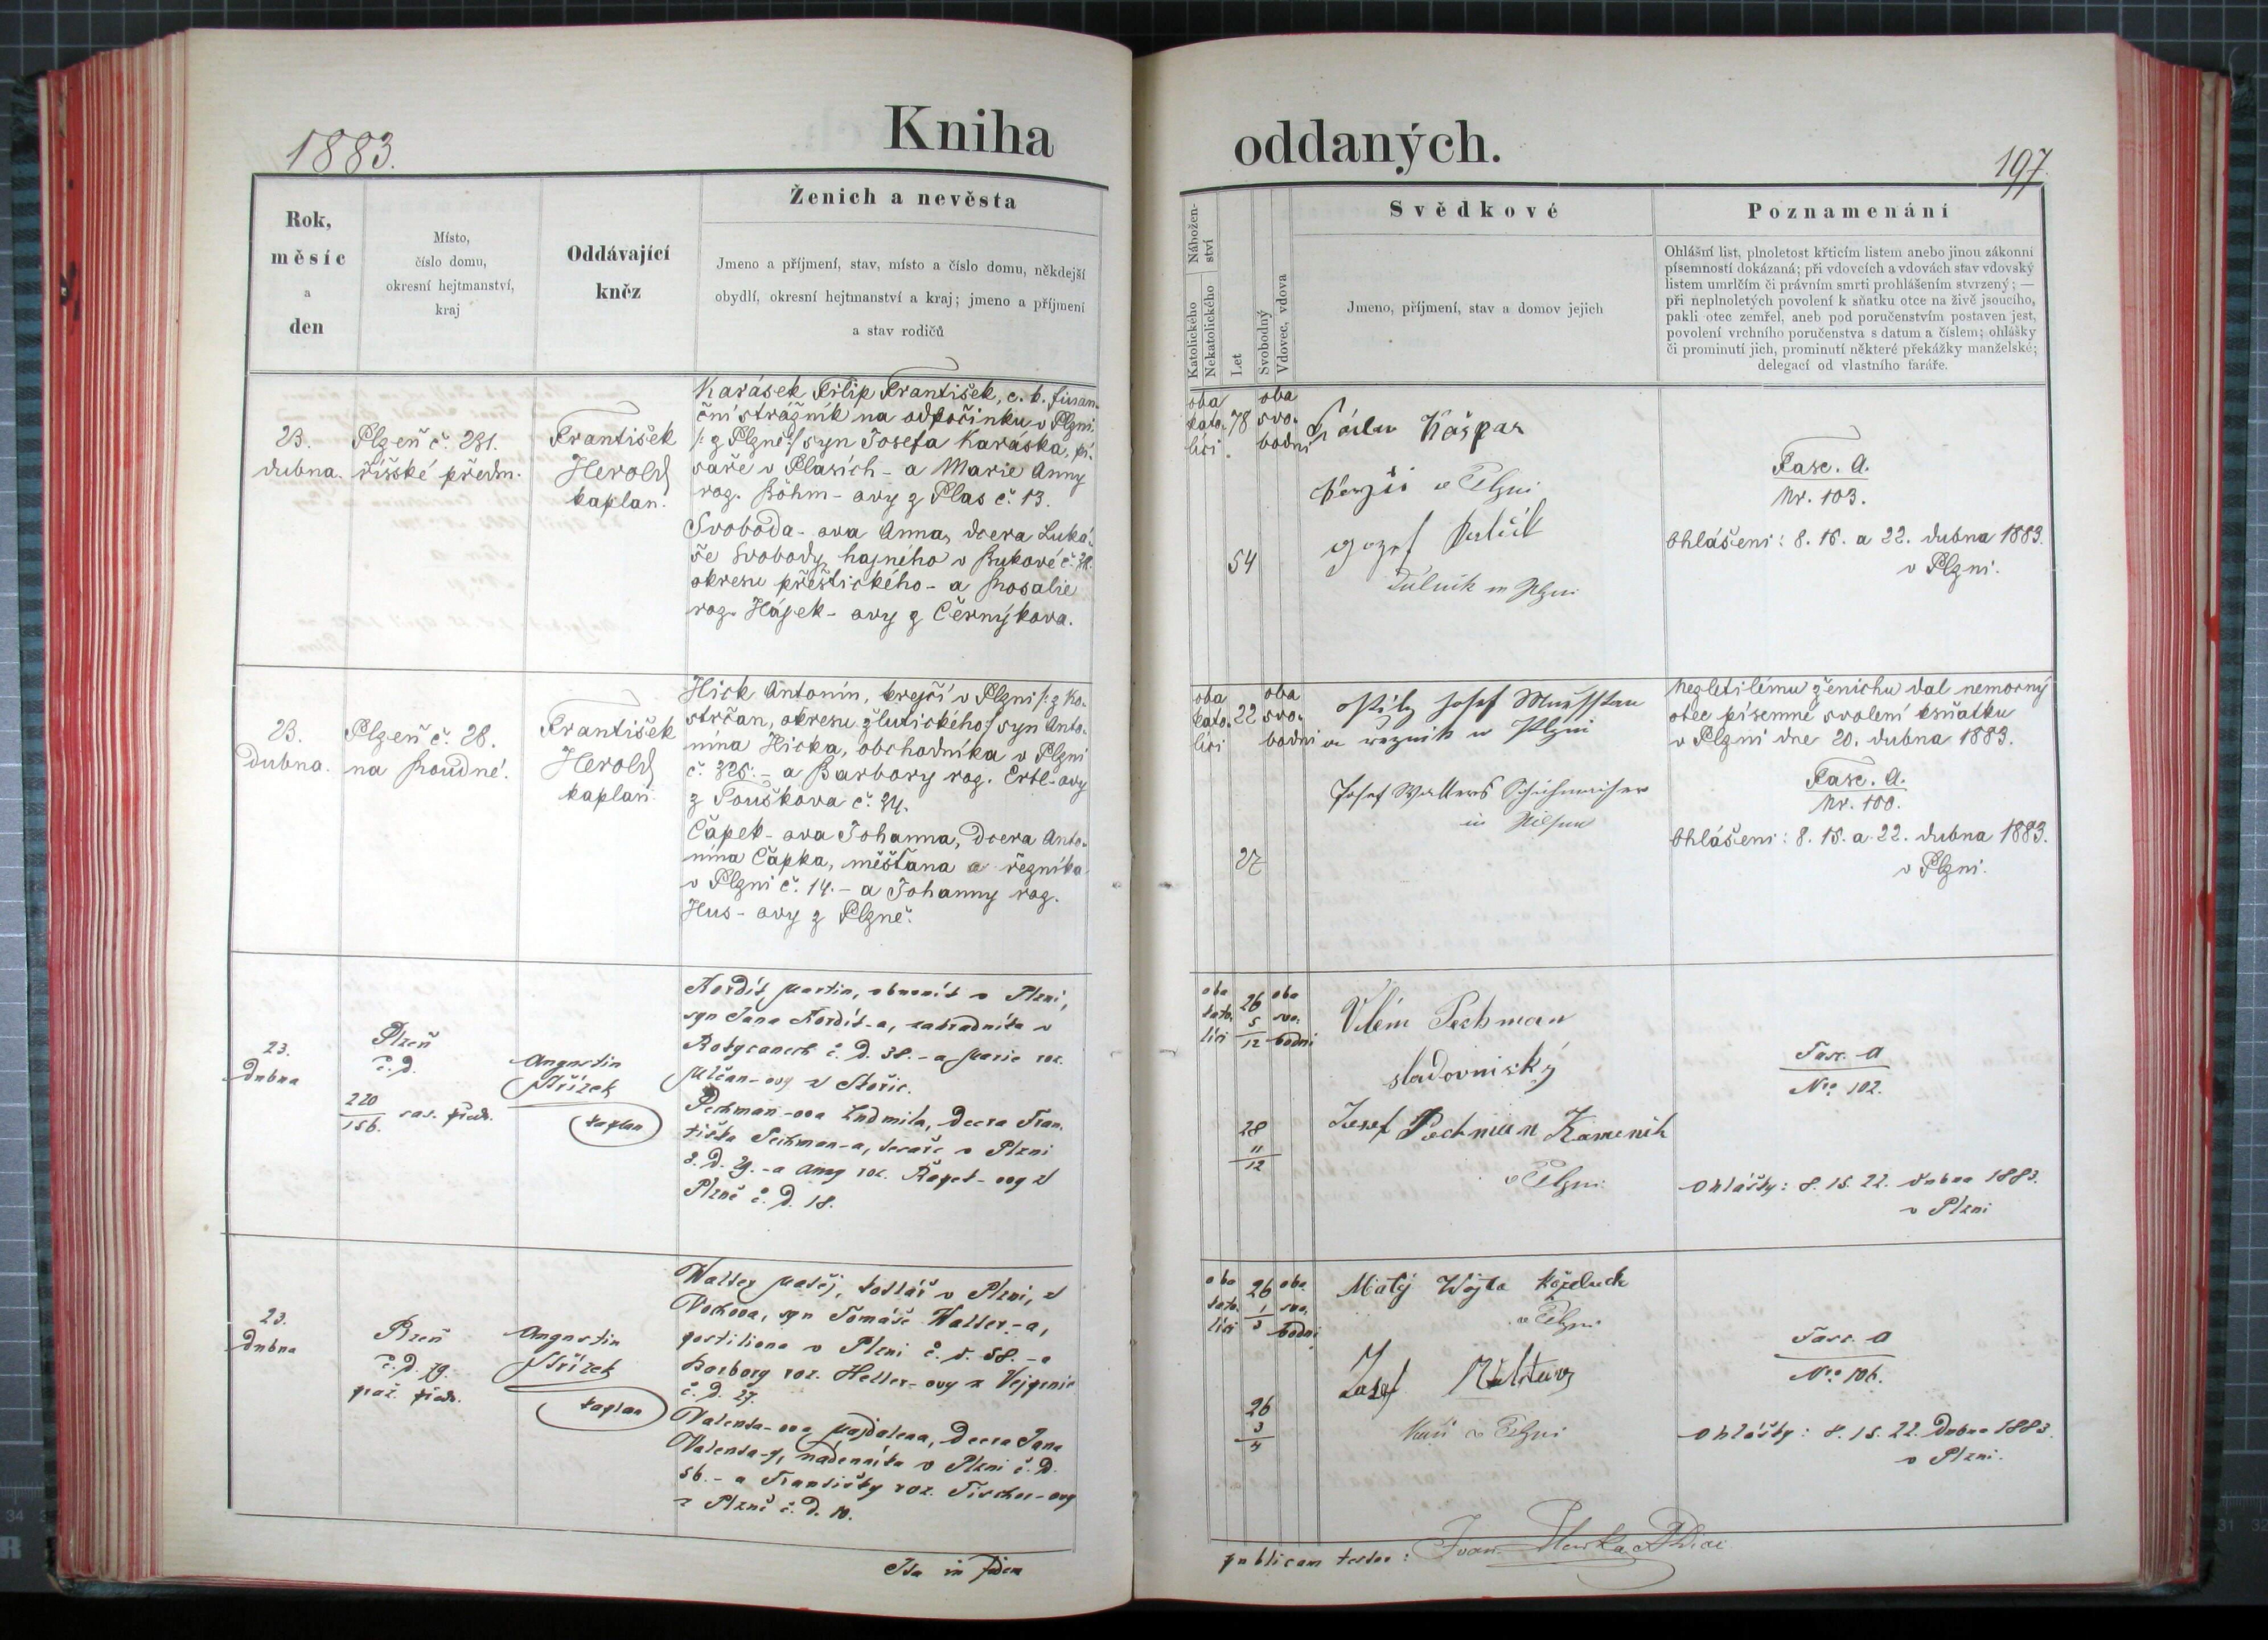 1883.
Kniha
oddaných.
197.
Rok,
měsíc
a
den
Místo,
číslo domu,
okresní hejtmanství,
kraj
Oddávající
kněz
Ženich a nevěsta
Jmeno a příjmení, stav, místo a číslo domu, někdejší
obydlí, okresní hejtmanství a kraj; jmeno a příjmení
a stav rodičů
Nábožen-
ství
Katolického
Nekatolického
Let
Svobodný
Vdovec, vdova
Svědkové
Jmeno, příjmení, stav a domov jejich
Poznamenání
Ohlášní list, plnoletost křticím listem anebo jinou zákonní
písemností dokázaná; při vdovcích a vdovách stav vdovský
listem umrlčím či právním smrti prohlášením stvrzený; —
při neplnoletých povolení k sňatku otce na živě jsoucího,
pakli otec zemřel, aneb pod poručenstvím postaven jest,
povolení vrchního poručenstva s datum a číslem; ohlášky
či prominutí jich, prominutí některé překážky manželské;
delegací od vlastního faráře.
23.
dubna.
Plzeň č. 231.
říšské předm.
František
Herold
kaplan.
Karásek Filip František, c. k. finan-
ční strážník na odpočinku v Plzni
/: z Plzně :/ syn Josefa Karáska, pí-
saře v Plasích - a Marie Anny
roz. Böhm - ovy z Plas č. 13.
Svoboda - ova Anna, dcera Luká-
še Svobody, hajného v Bukové č. 38.
okresu přeštického - a Rosalie
roz. Hájek - ovy z Černýkova.
oba
kato-
líci.
78
oba
svo-
bodni
54
Kašpar
v Plzni
Jozef
v Plzni
Fasc. A.
Nr. 103.
Ohlášeni: 8. 15. a 22. dubna 1883.
v Plzni.
23.
Dubna.
Plzeň č. 28.
na Roudné.
František
Herold
kaplan.
Hick Antonín, krejčí v Plzni /: z Ko-
strčan, okresu žlutického :/ syn Anto-
nína Hicka, obchodníka v Plzni
č. 325. - a Barbory roz. Ertl-ovy
z Touškova č. 34.
Čapek - ova Johanna, dcera Anto-
nína Čapka, měšťana a řezníka
v Plzni č. 14. - a Johanny roz.
Hus - ovy z Plzně.
oba
kato-
líci
22
oba
svo-
bodni
27
Josef
řezník v Plzni
Josef Walters
in Pilsen
Nezletilému ženichu dal nemocný
otec písemné svolení ksňatku
v Plzni dne 20. dubna 1883.
Fasc. A.
Nr. 100.
Ohlášeni: 8. 15. a 22. dubna 1883.
v Plzni.
23.
Dubna
Plzeň
č. D.
220
156.
sas. předm.
Augustin
Střízek
kaplan
Kordík Martin, obuvník v Plzni,
syn Jana Kordík-a, zahradníka v
Rokycanech č. D. 38. - a Marie roz.
Mlčan-ovy z Stořic.
Pechman-ova Ludmila, Dcera Fran-
tiška Pechman-a, tesaře v Plzni
č. D. 29. - a Anny roz. Řapek-ovy z
Plzně č. D. 18.
oba
kato-
líci
26
5
12
oba
svo-
bodni
28
11
12
Vilém Pechman
sladovnický
Josef Pechman Kameník
v Plzni
Fasc. A
Nro 102.
Ohlášky: 8. 15. 22. dubna 1883.
v Plzni
23.
Dubna
Plzeň
č. D. 79.
praž. předm.
Augustin
Střízek
kaplan
Walter Matěj, kotlář v Plzni, z
Vochova, syn Tomáše Walter-a,
postiliona v Plzni č. d. 58. - a
Barbory roz. Heller-ovy z Vejprnic
č. D. 27.
Valenta-ova Majdalena, Dcera Jana
Valenta-y, nádenníka v Plzni č. D.
56. - a Františky roz. Fischer-ovy
z Plzně č. D. 10.
oba
kato-
líci
26
1
3
oba
svo-
bodni
26
3
4
Matěj Wojta
v Plzni
Josef
v Plzni
Fasc. A
Nro 106.
Ohlášky: 8. 15. 22. Dubna 1883.
v Plzni.
Ita in fidem
publicam testor: